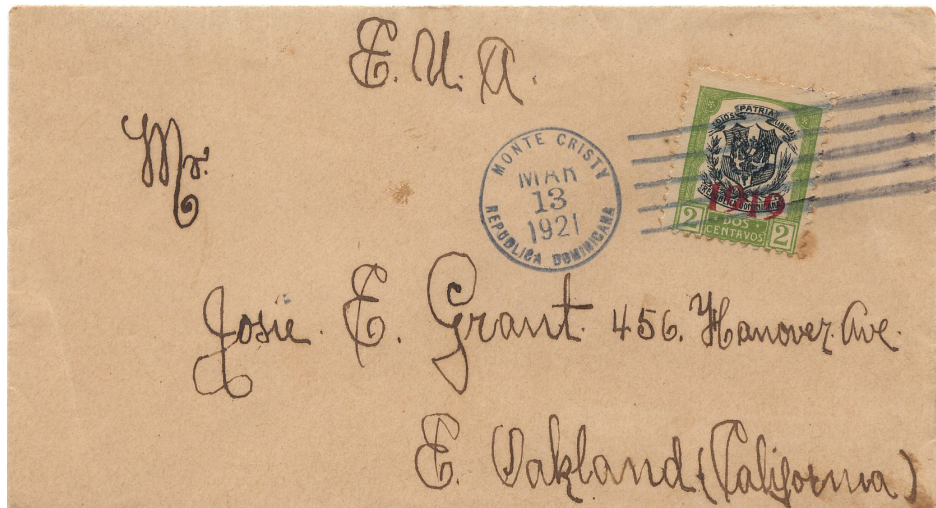 E. U. A.
Mr.
MONTE CRISTY
MAR
13
1921
REPUBLICA DOMINICANA
DIOS PATRIA LIBERTAD
REPUBLICA DOMINICANA
1919
2 DOS CENTAVOS 2
Josie E. Grant. 456. Hanover. Ave.
E. Oakland (California)